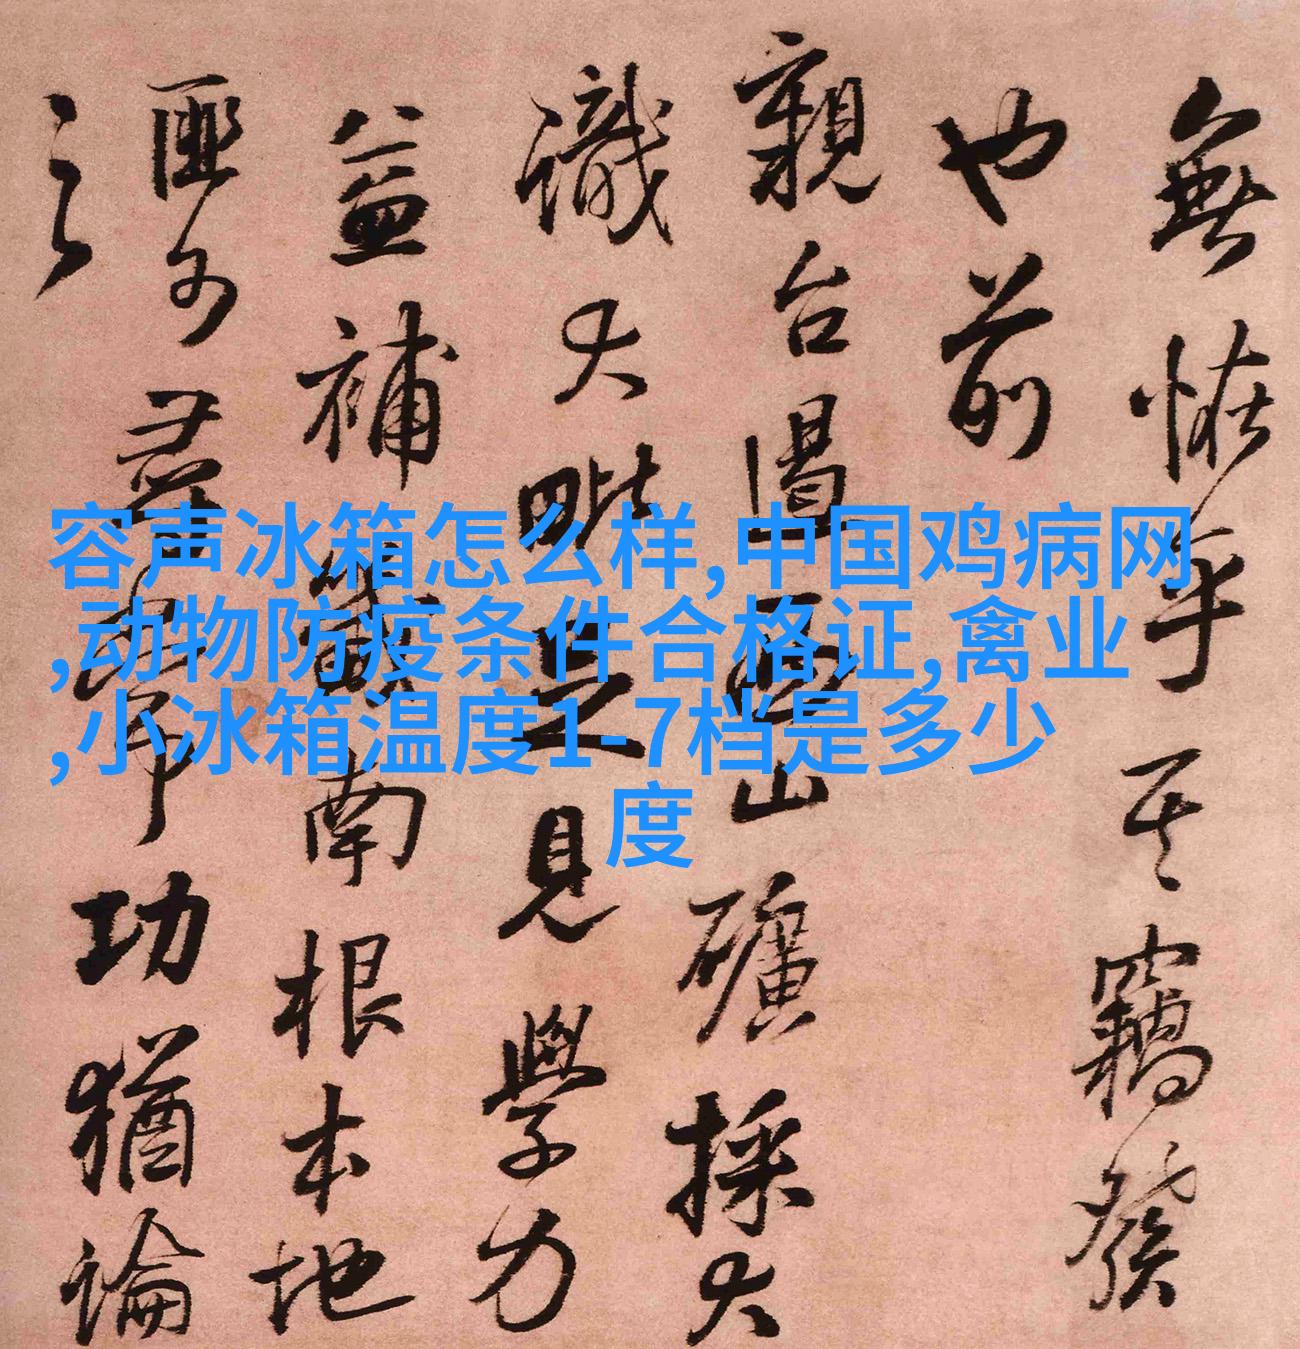 容声冰箱怎么样,中国鸡病网
,动物防疫条件合格证,禽业
,小冰箱温度1-7档是多少
度
無恠乎其竊發
也前
親台山礦採大
識大足見學力
益補南根本地
匪功猶論
之